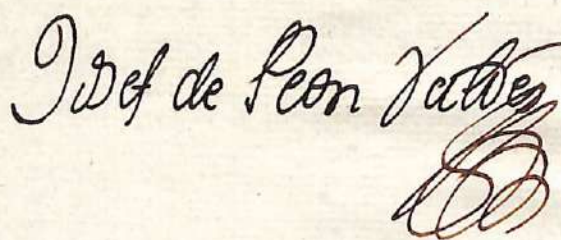 Josef de Peon Valdes